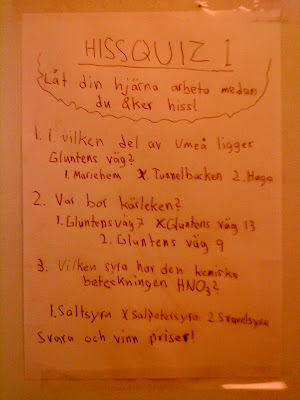 HISSQUIZ 1
Låt din hjärna arbeta medan
du åker hiss!
1. I vilken del av Umeå ligger
Gluntens väg?
1. Mariehem X. Tunnelbacken 2. Haga
2. Var bor kärleken?
1. Gluntens väg 7 X Gluntens väg 13
2. Gluntens väg 9
3. Vilken syra har den kemiska
beteckningen HNO3?
1. Saltsyra X Salpetersyra 2 Svavelsyra
Svara och vinn priser!